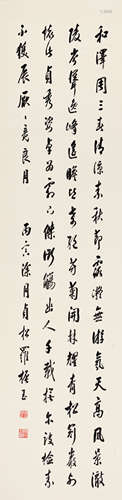 和澤周三春清涼素秋節露凝無游氛天高風景澈
陵岑聳逸峰遙瞻皆奇絕芳菊開林耀青松冠巖列
懷此貞秀姿卓為霜下傑銜觴念幽人千載撫爾訣檢素
不獲展厭〻竟良月 丙寅涂月貞松羅振玉